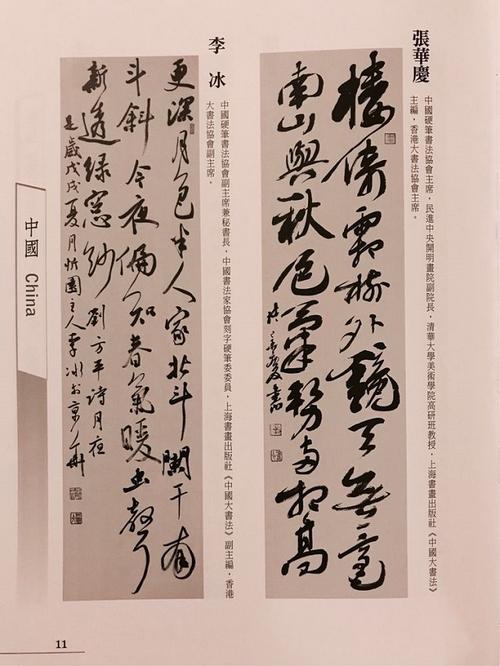 張華慶
中國硬筆書法協會主席，民進中央開明畫院副院長，清華大學美術學院高研班教授，上海書畫出版社《中國大書法》
主編，香港大書法協會主席。
樓倚霜樹外鏡天無一毫
南山與秋色氣勢兩相高
張華慶書
李 冰
中國硬筆書法協會副主席兼秘書長，中國書法家協會刻字硬筆委委員，上海書畫出版社《中國大書法》副主編，香港
大書法協會副主席。
更深月色半人家北斗闌干南
斗斜今夜偏知春氣暖虫聲
新透綠窓紗 劉方平詩月夜
是歲戊戌夏月忻園主人李冰於京
中國 China
11